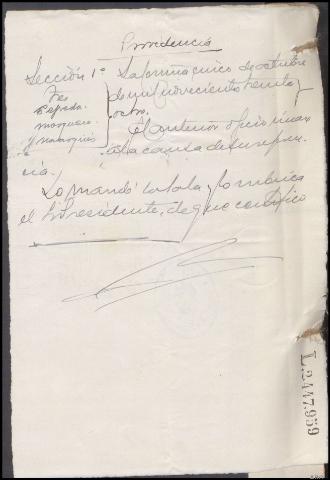 Providencia
Sección 1ª
Sres
Cepeda
Mosquera
y Marroquin
La Coruña cinco de octubre
de mil novecientos treinta y
ocho.
El anterior oficio únase
a la causa de su referen-
cia.
Lo mandó la Sala y lo rubrica
el Sr Presidente, de que certifico
L.2447.959